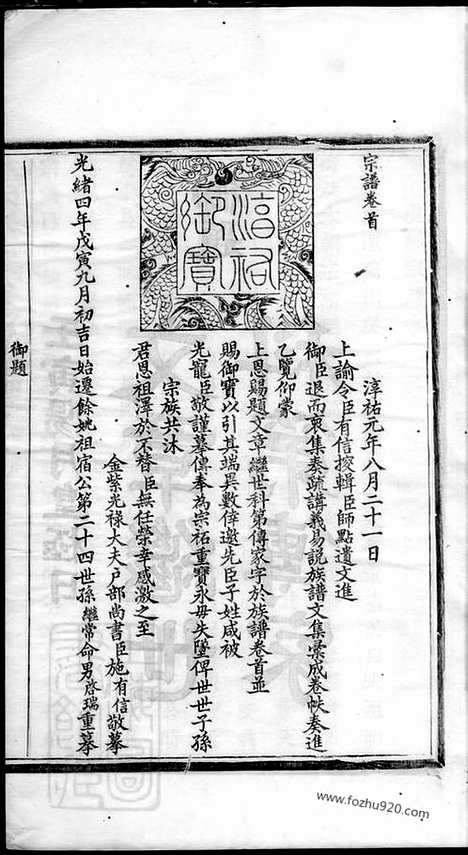 宗譜卷首
淳祐御寶
淳祐元年八月二十一日
上諭令臣有信搜輯臣師點遺文進
御臣退而裒集奏疏講義易說族譜文集彙成卷帙奏進
乙覽仰蒙
上恩賜題文章繼世科第傳家字於族譜卷首並
賜御寶以引其端異數倖邀先臣子姓咸被
光寵臣敬謹摹傳奉為宗祏重寶永毋失墜俾世世子孫
宗族共沐
君恩祖澤於不替臣無任榮幸感激之至
金紫光祿大夫戶部尚書臣施有信敬摹
光緒四年戊寅九月初吉日始遷餘姚祖宿公第二十四世孫繼常命男啓瑞重摹
御題
www.fozhu920.com